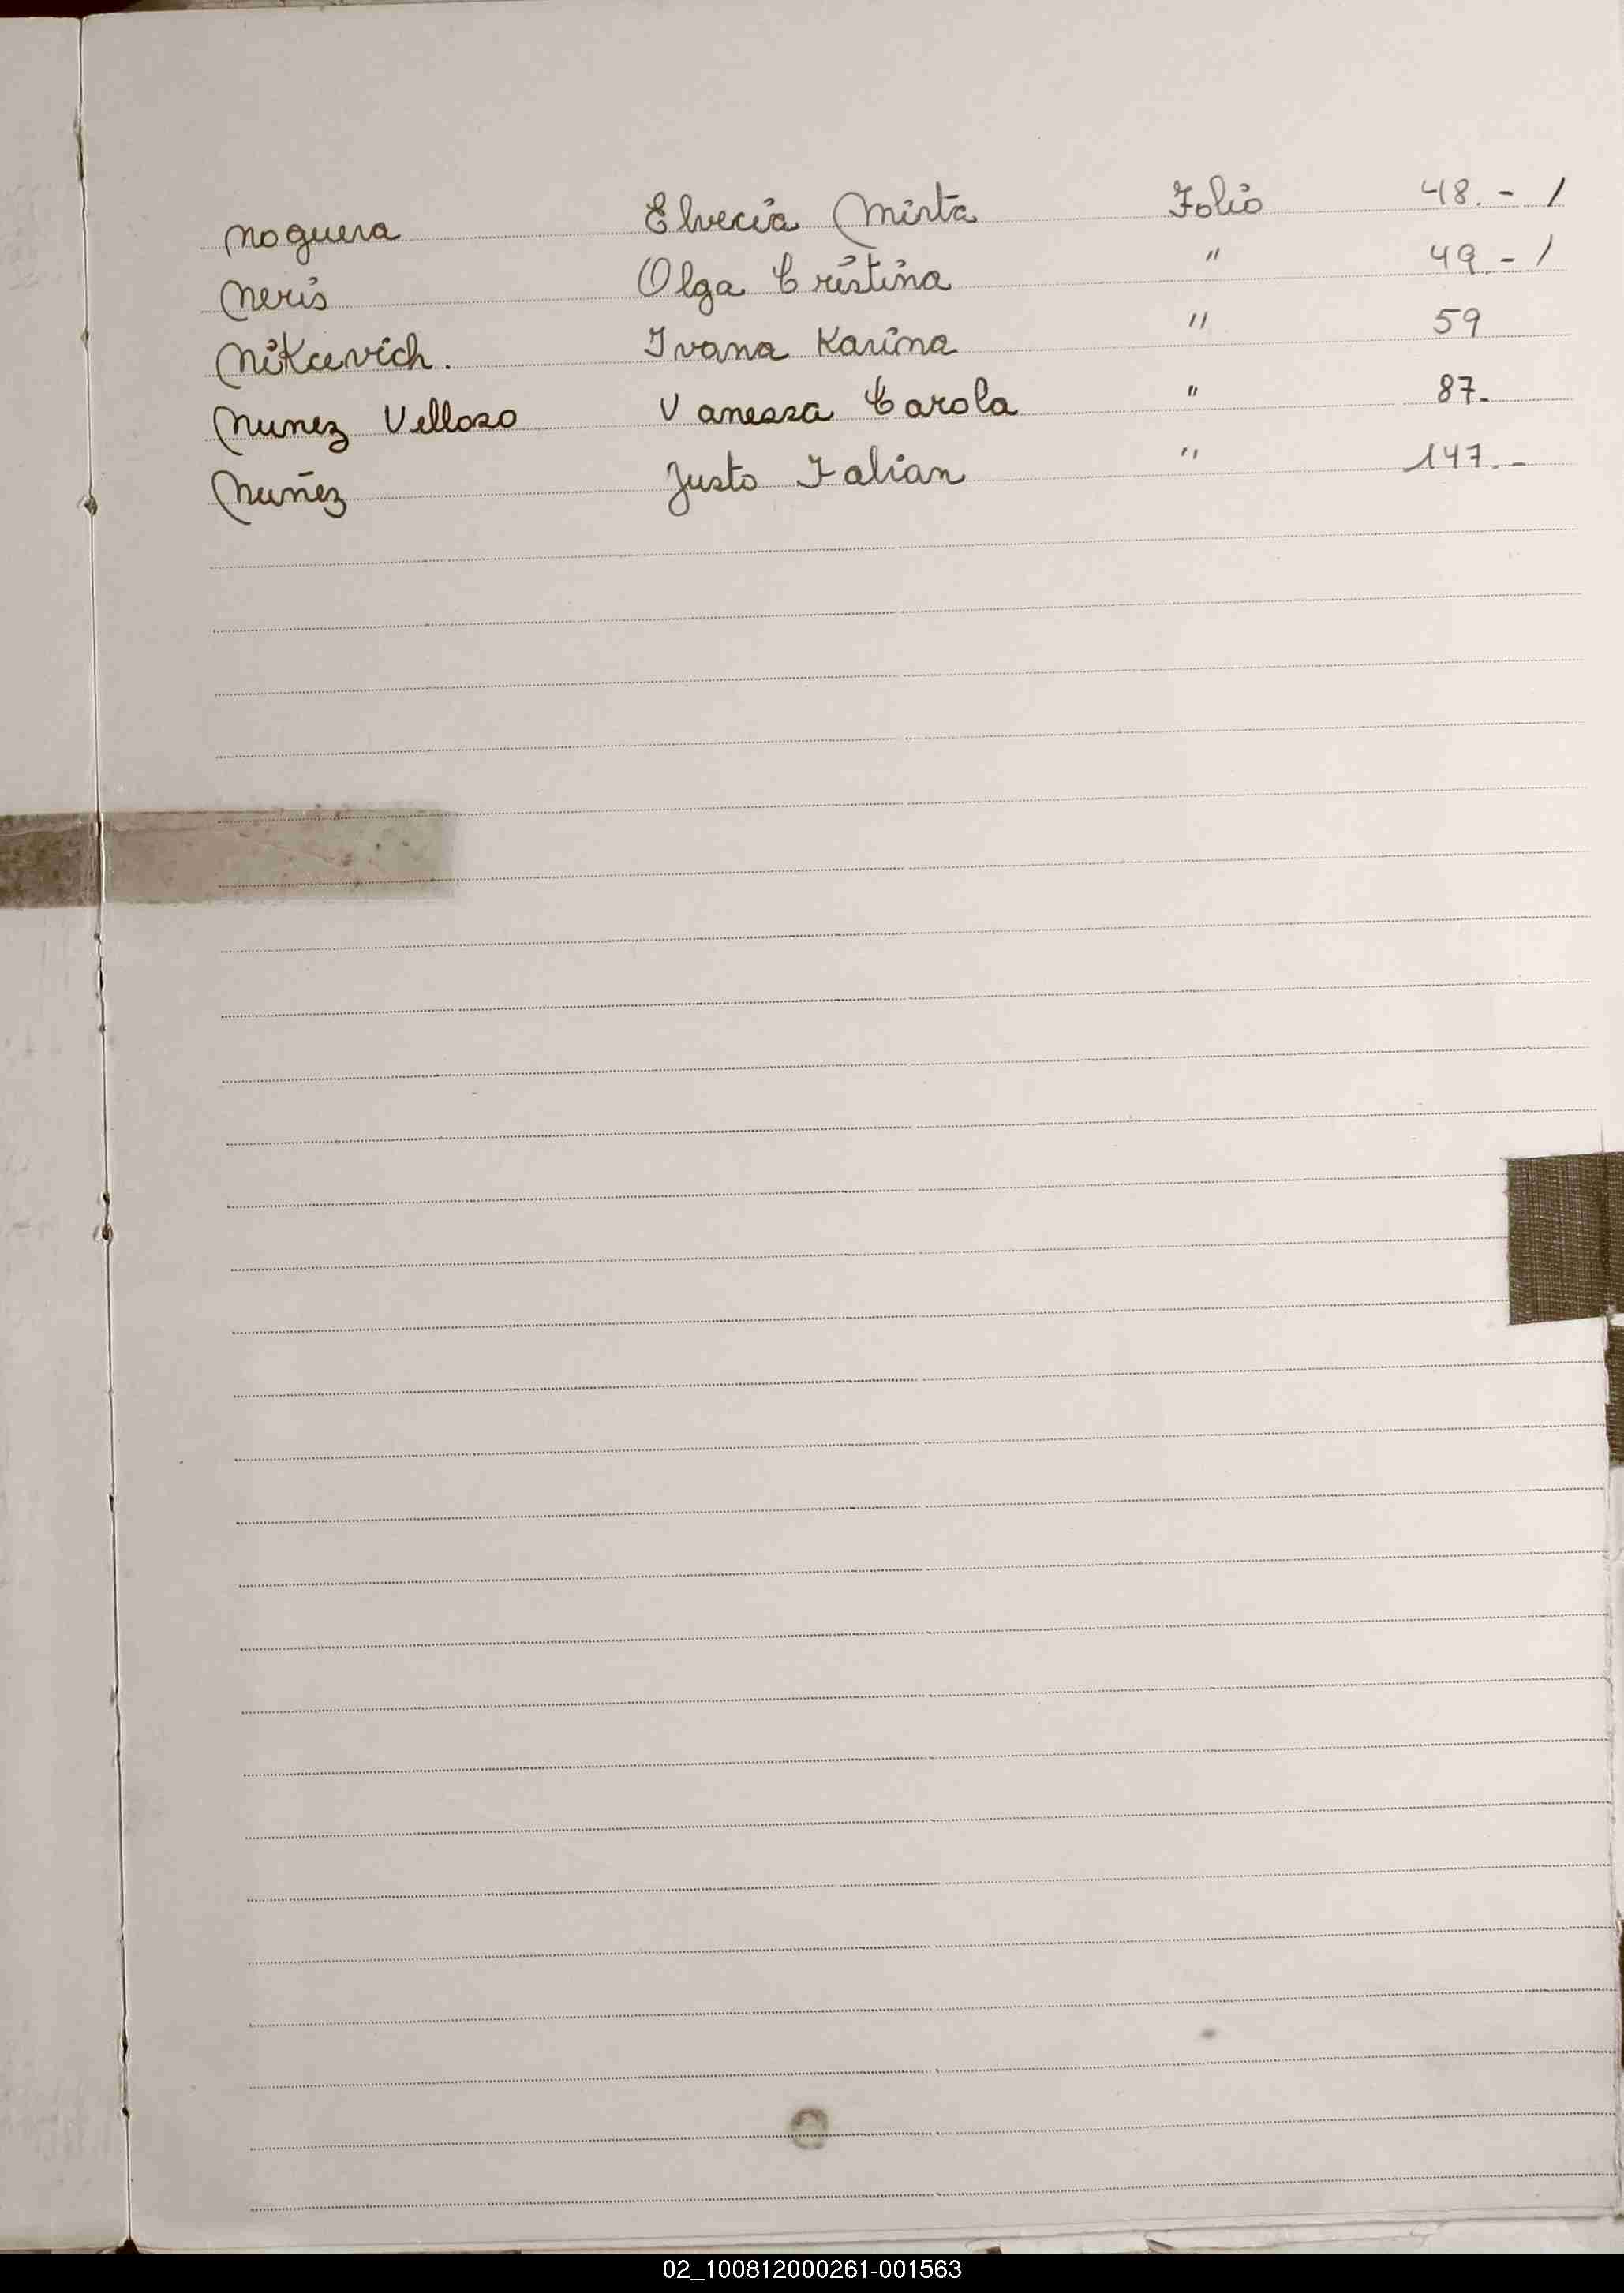 Noguera Elvecia Mirta Folio 48.- /
Neris Olga Cristina " 49.- /
Nikcevich. Ivana Karina " 59
Nunez Velloso Vanessa Carola " 87.-
Nuñez Justo Fabian " 147.-
02_100812000261-001563